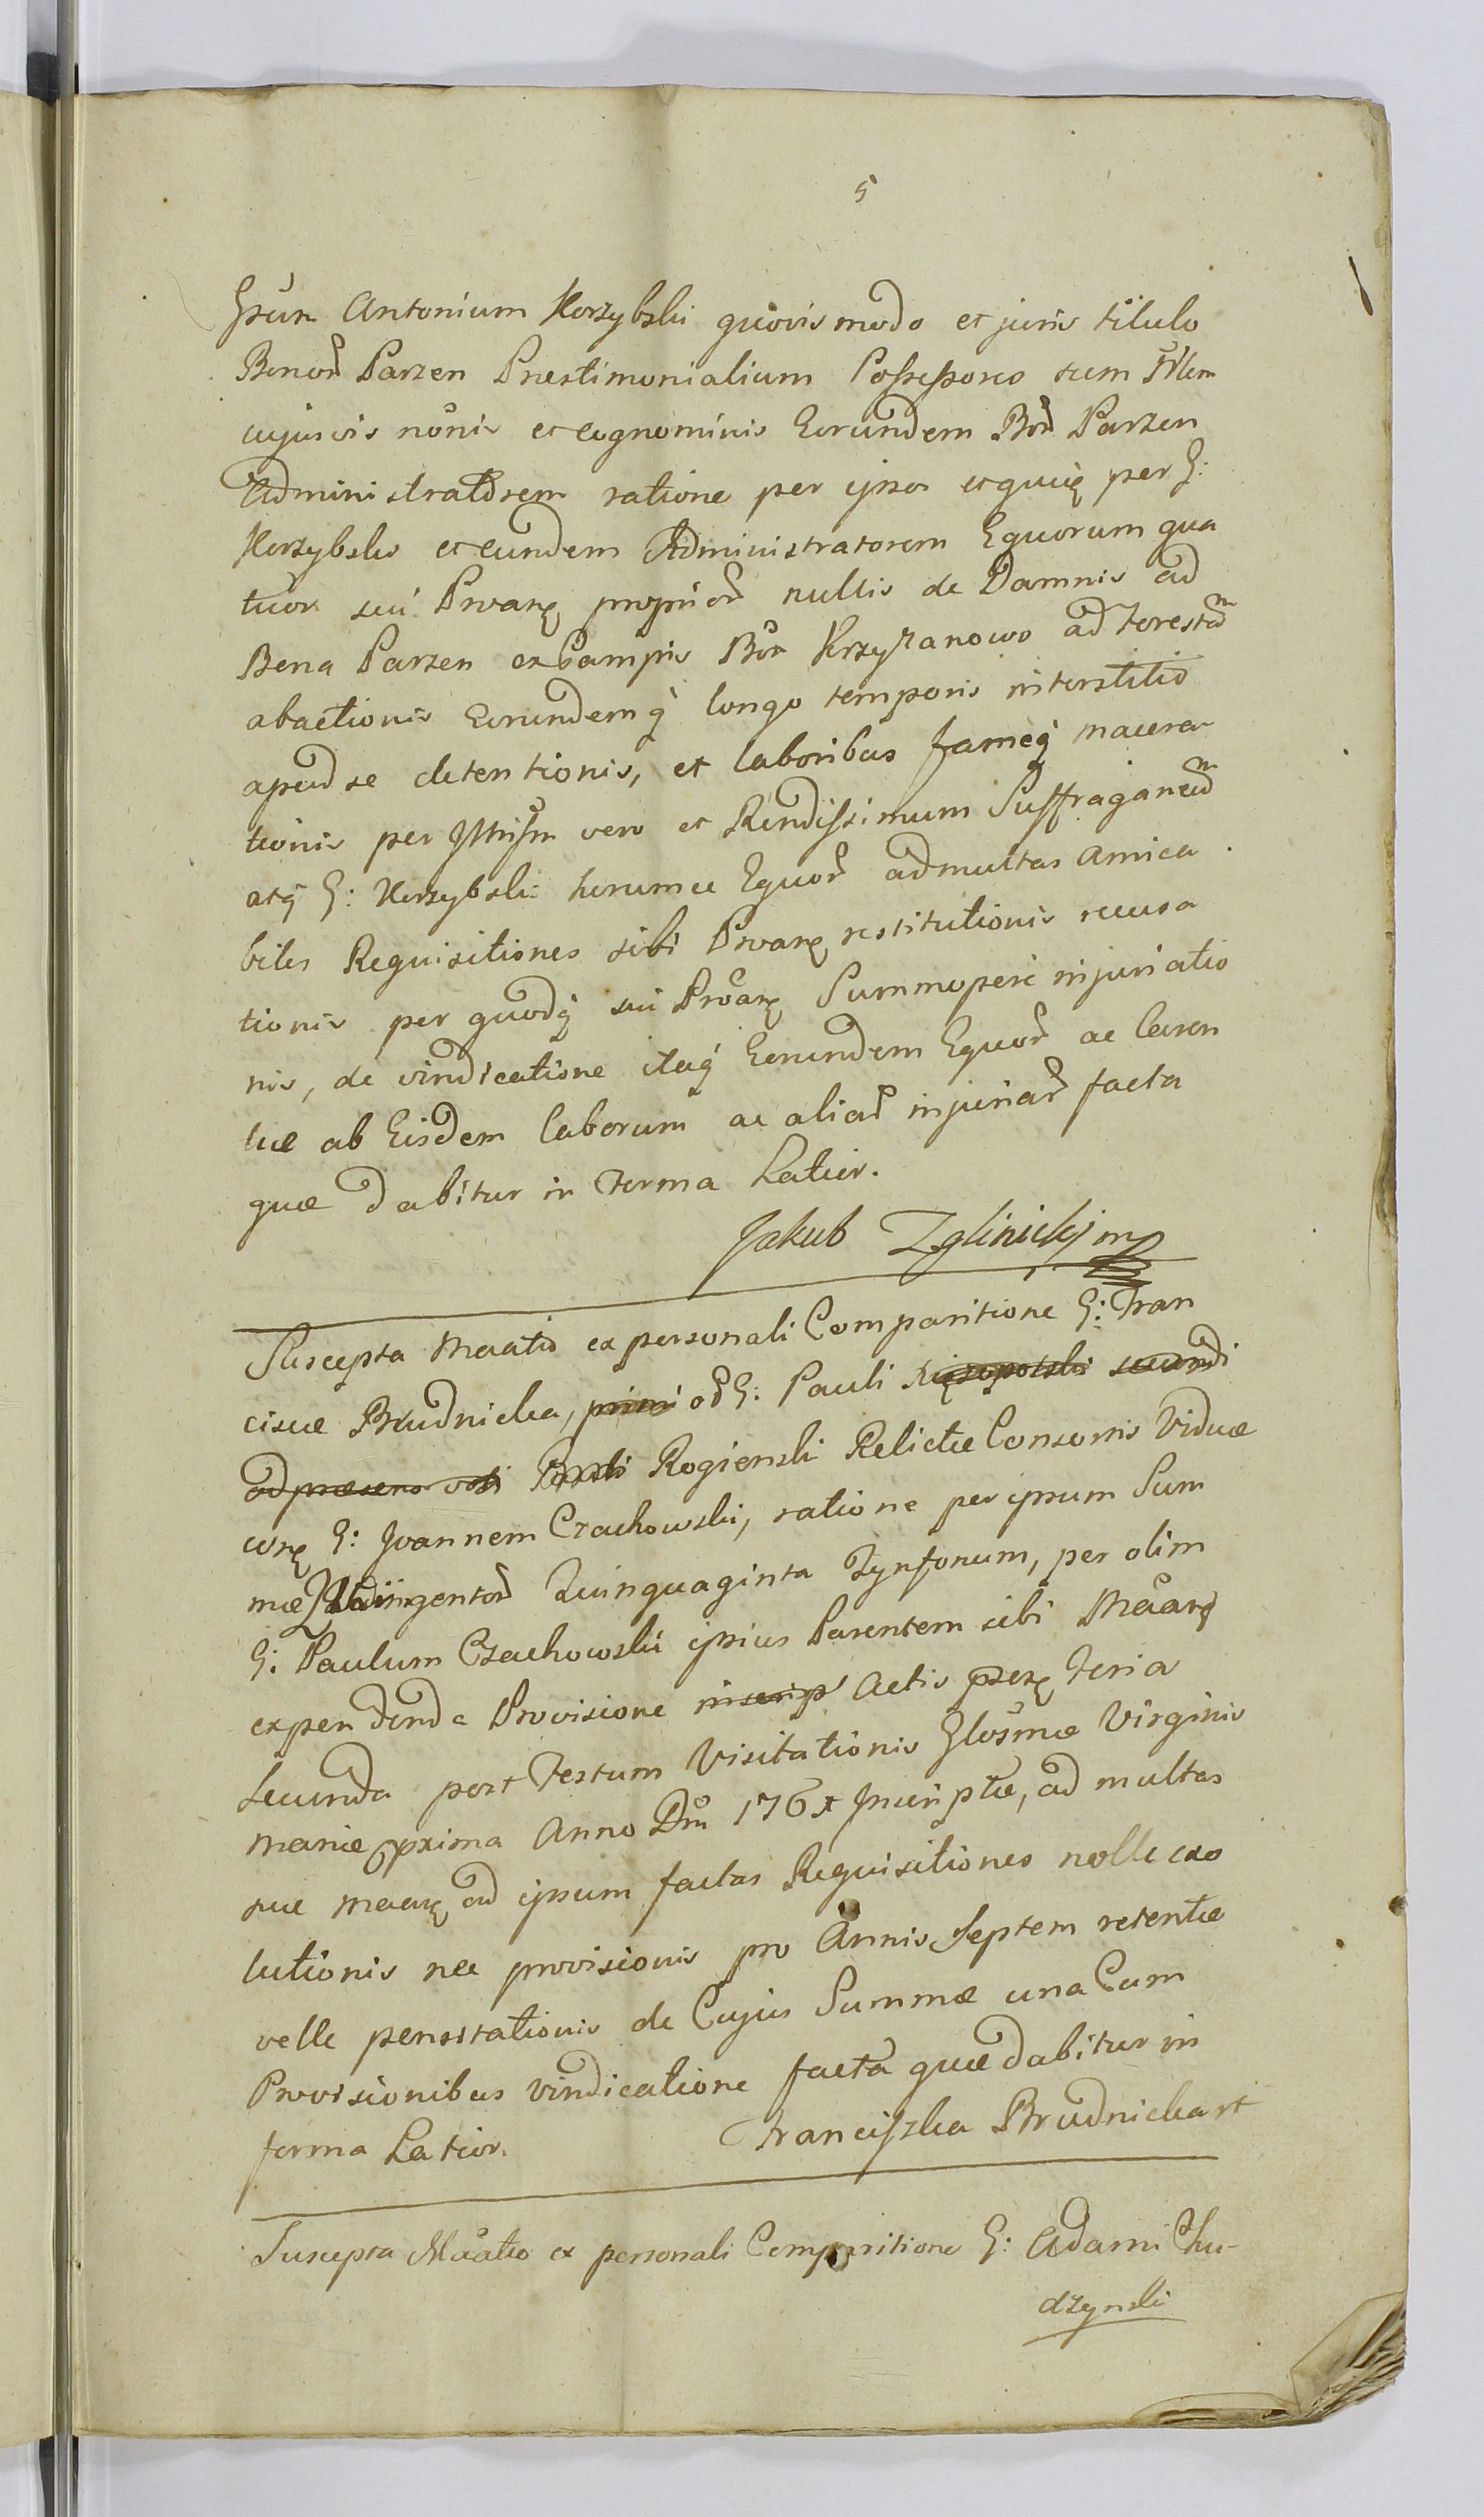 5
Gsum Antonium Korzybski quovis modo et juris titulo
Bonor Parzen Prestimonialium Possessores tum Illem
cujusvis nonis et cognominis Eorundem Bor Parzen
Administratorem ratione per ipsos et quiq per G:
Korzybski et eundem Administratorem Equorum qua
tuor sui Proang proprior nullis de Damnis ad
Bona Parzen ex Campis Bor Krzyzanowo ad forestam
abactionis Eorundemq longo temporis interstitio
apud se detentionis, et laboribus fameq macera
tionis per Illrism vero et Rendissimum Suffraganeum
atq G: Korzybski horumce Equor ad multas amica
biles Requisitiones sibi Proang restitutionis recusa
tionis per quodq sui Proang Summopere injuriatio
nis, de vindicatione itaq Eorundem Equor ac Caren
tiæ ab Eisdem laborum ac aliar injuriar facta
quæ dabitur in Forma Latior.
Jakub Zglinickj mp
Suscepta Maatio ex personali Comparitione G: Fran
ciscæ Brudnicka, primi od G: Pauli secundi
ad præsens voti Rogienski Relictæ Consortis Viduæ
cong G: Joannem Czachowski, ratione per ipsum Sum
mæ Quingentor Quinquaginta Tynfonum, per olim
G: Paulum Czachowski ipsius Parentem sibi Maang
expendenda Provisione inscrip Actis præsq Feria
Secunda post Festum Visitationis Glosmæ Virginis
Mariæ proxima Anno Dni 176 Inscriptæ, ad multas
suæ Maang ad ipsum factas Requisitiones nolle exo
lutionis nec provisionis pro Annis Septem retentæ
velle pensitationis de Cujus Summæ una Cum
Provisionibus vindicatione facta quæ dabitur in
forma Latior.
Franciszka Brudnicka
Suscepta Maatio ex personali Comparitione G: Adami Chu-
dzynski